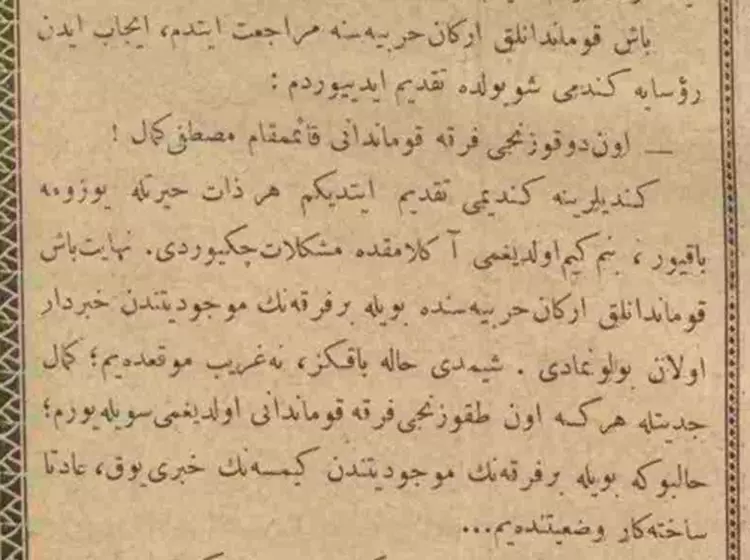 باش قوماندانلق اركان حربیه‌سنه مراجعت ایتدم، ایجاب ایدن
رؤسایه كندمی شویولده تقدیم ایدییوردم :
— اون دوقوزنجی فرقه قوماندانی قائممقام مصطفی كمال !
كندیلرینه كندیمی تقدیم ایتدیكم هر ذات حیرتله یوزومه
باقیور ، بنم كیم اولدیغمی آ كلامقده مشكلات چكیوردی. نهایت باش
قوماندانلق اركان حربیه‌سنده بویله برفرقه‌نك موجودیتندن خبردار
اولان بولونمادی . شیمدی حاله باقكز، نه غریب موقعده‌یم؛ كمال
جدیتله هركسه اون طقوزنجی فرقه قوماندانی اولدیغمی سویله‌یورم؛
حالبوكه بویله برفرقه‌نك موجودیتندن كیمسه‌نك خبری یوق، عادتا
ساخته‌كار وضعیتنده‌یم...